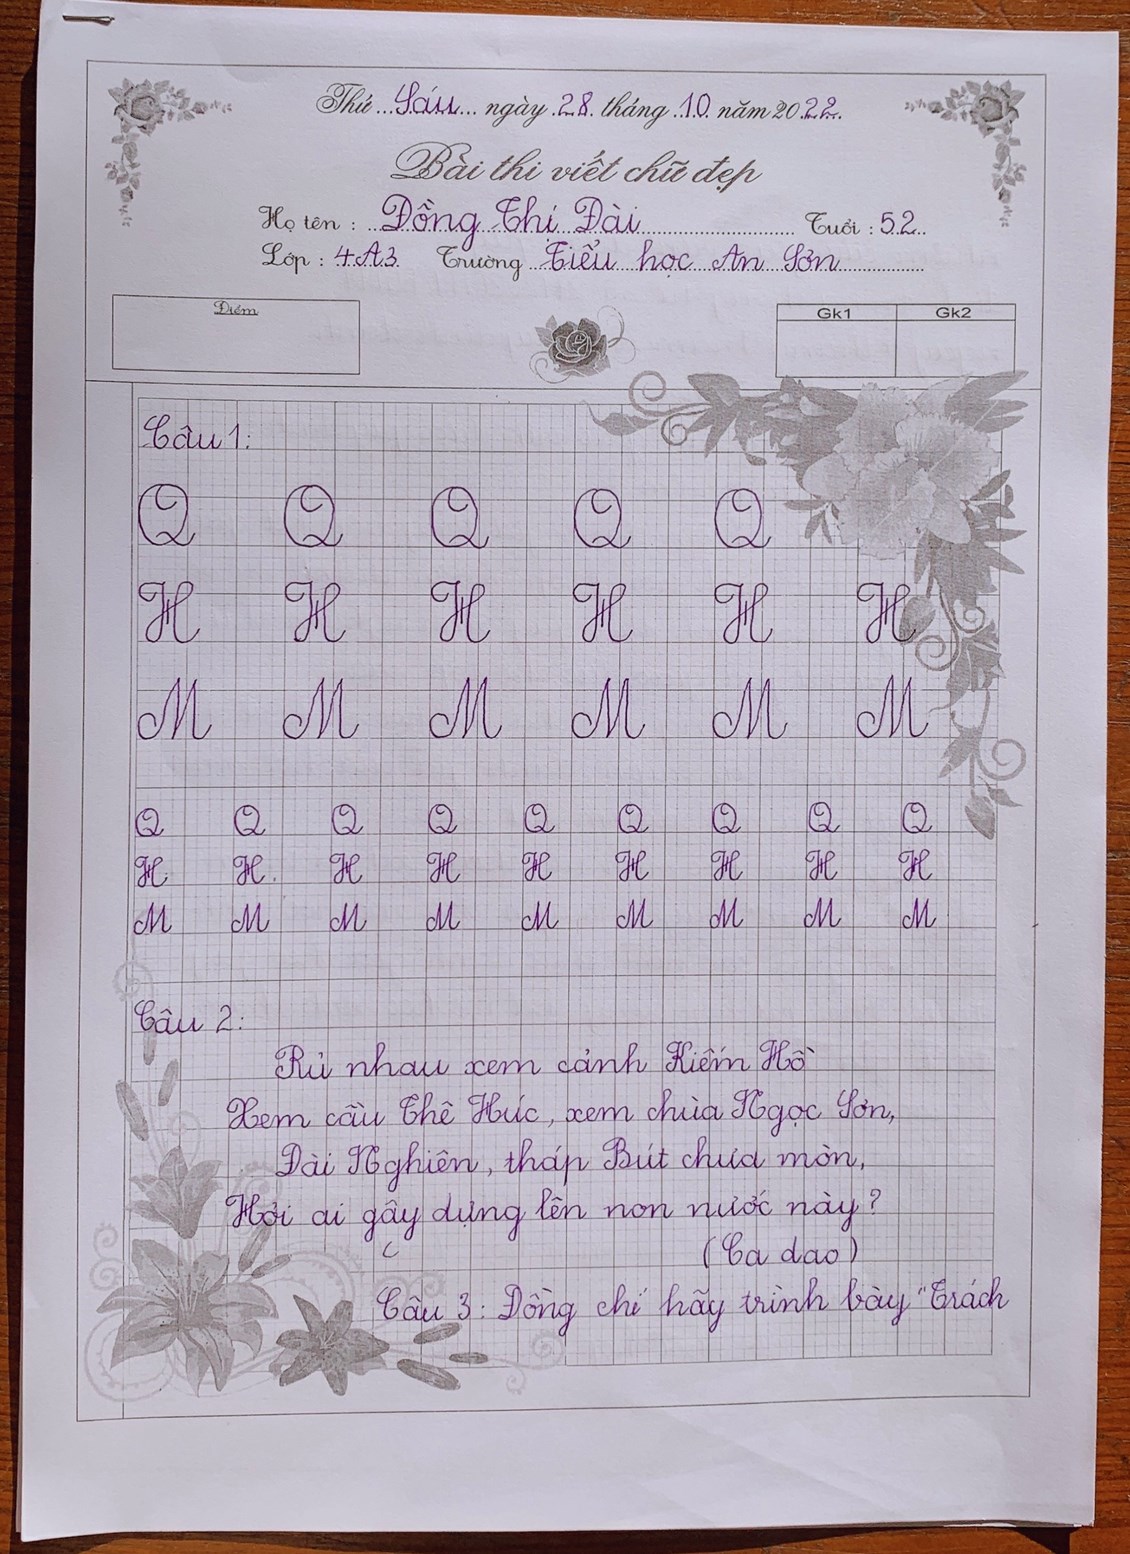 Thứ ... Sáu ... ngày .28. tháng .10. năm 2022.
Bài thi viết chữ đẹp
Họ tên : Đồng Thị Dài Tuổi : 52
Lớp : 4A3 Trường Tiểu học An Sơn
Điểm
Gk1 Gk2
Câu 1:
Q Q Q Q Q
H H H H H H
M M M M M M
Q Q Q Q Q Q Q Q Q
H H H H H H H H H
M M M M M M M M M
Câu 2:
Rủ nhau xem cảnh Kiếm Hồ
Xem cầu Thê Húc, xem chùa Ngọc Sơn,
Đài Nghiên, tháp Bút chưa mòn,
Hỏi ai gây dựng lên non nước này?
(Ca dao)
Câu 3: Đồng chí hãy trình bày "Trách